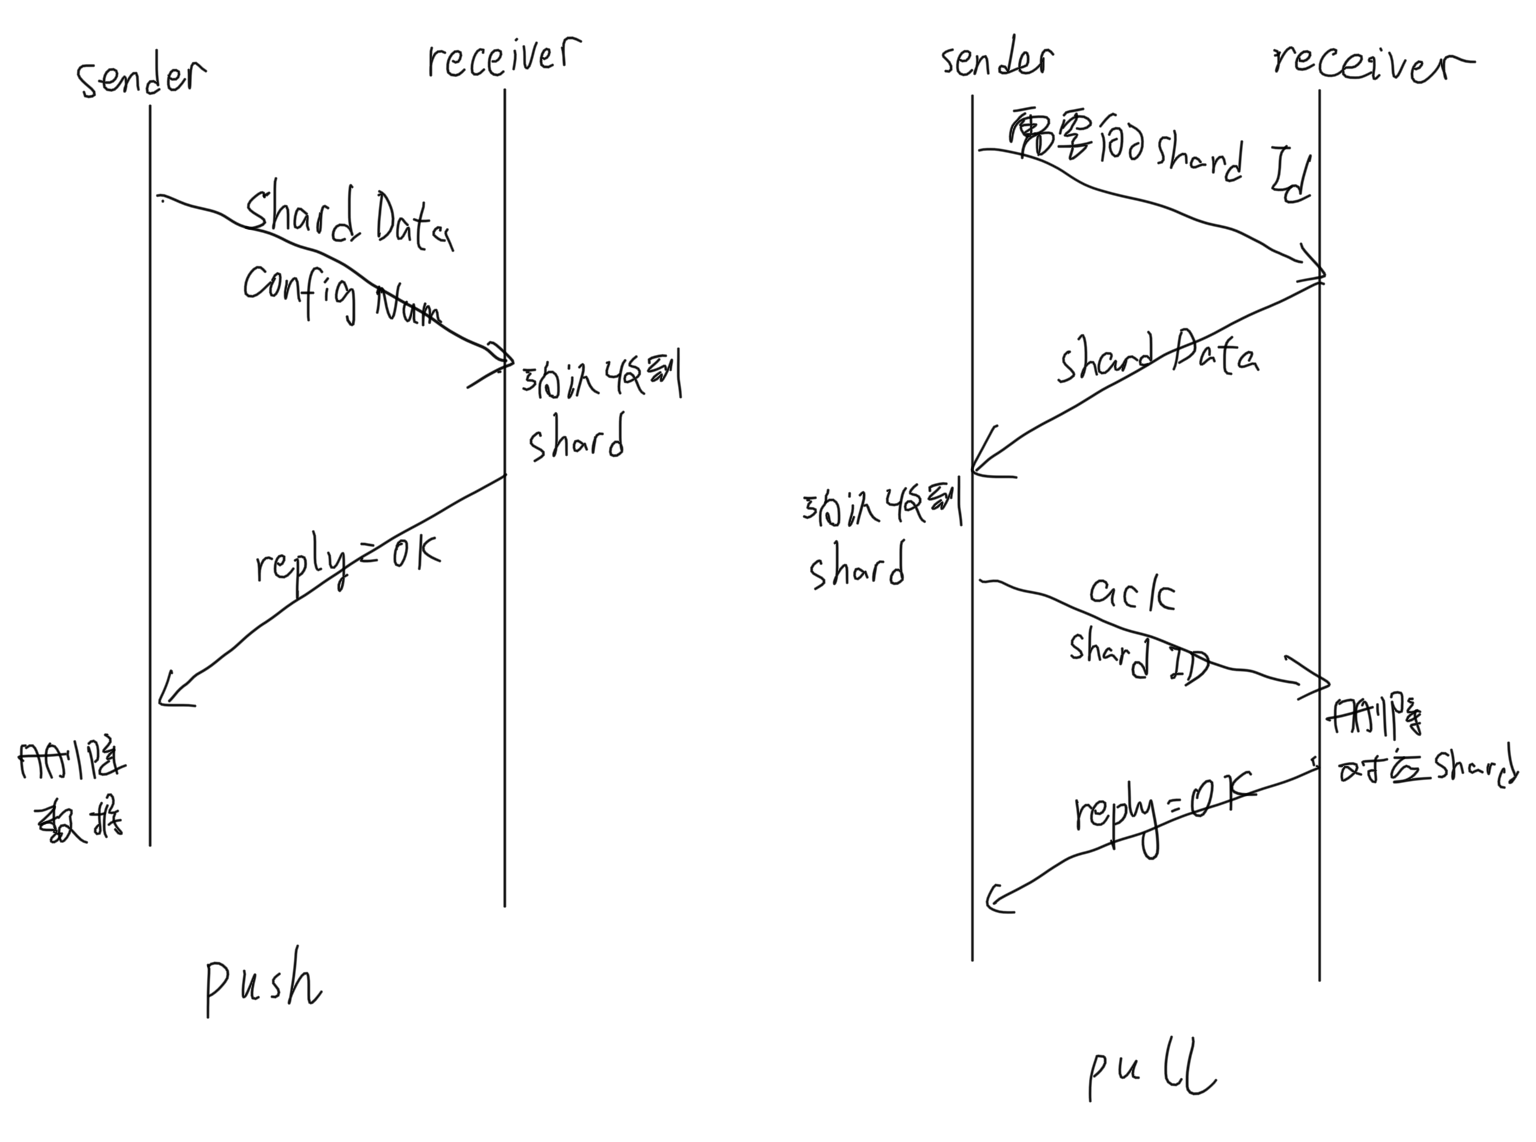 sender
receiver
Shard Data
Config Num
确认收到
shard
reply = OK
删除
数据
push
sender
receiver
需要的 shard Id
shard Data
确认收到
shard
ack
shard ID
删除
对应 shard
reply = OK
pull